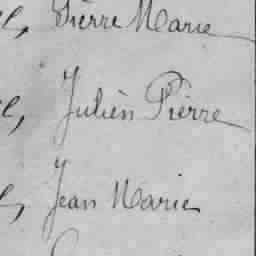 Pierre Marie
Julien Pierre
Jean Marie